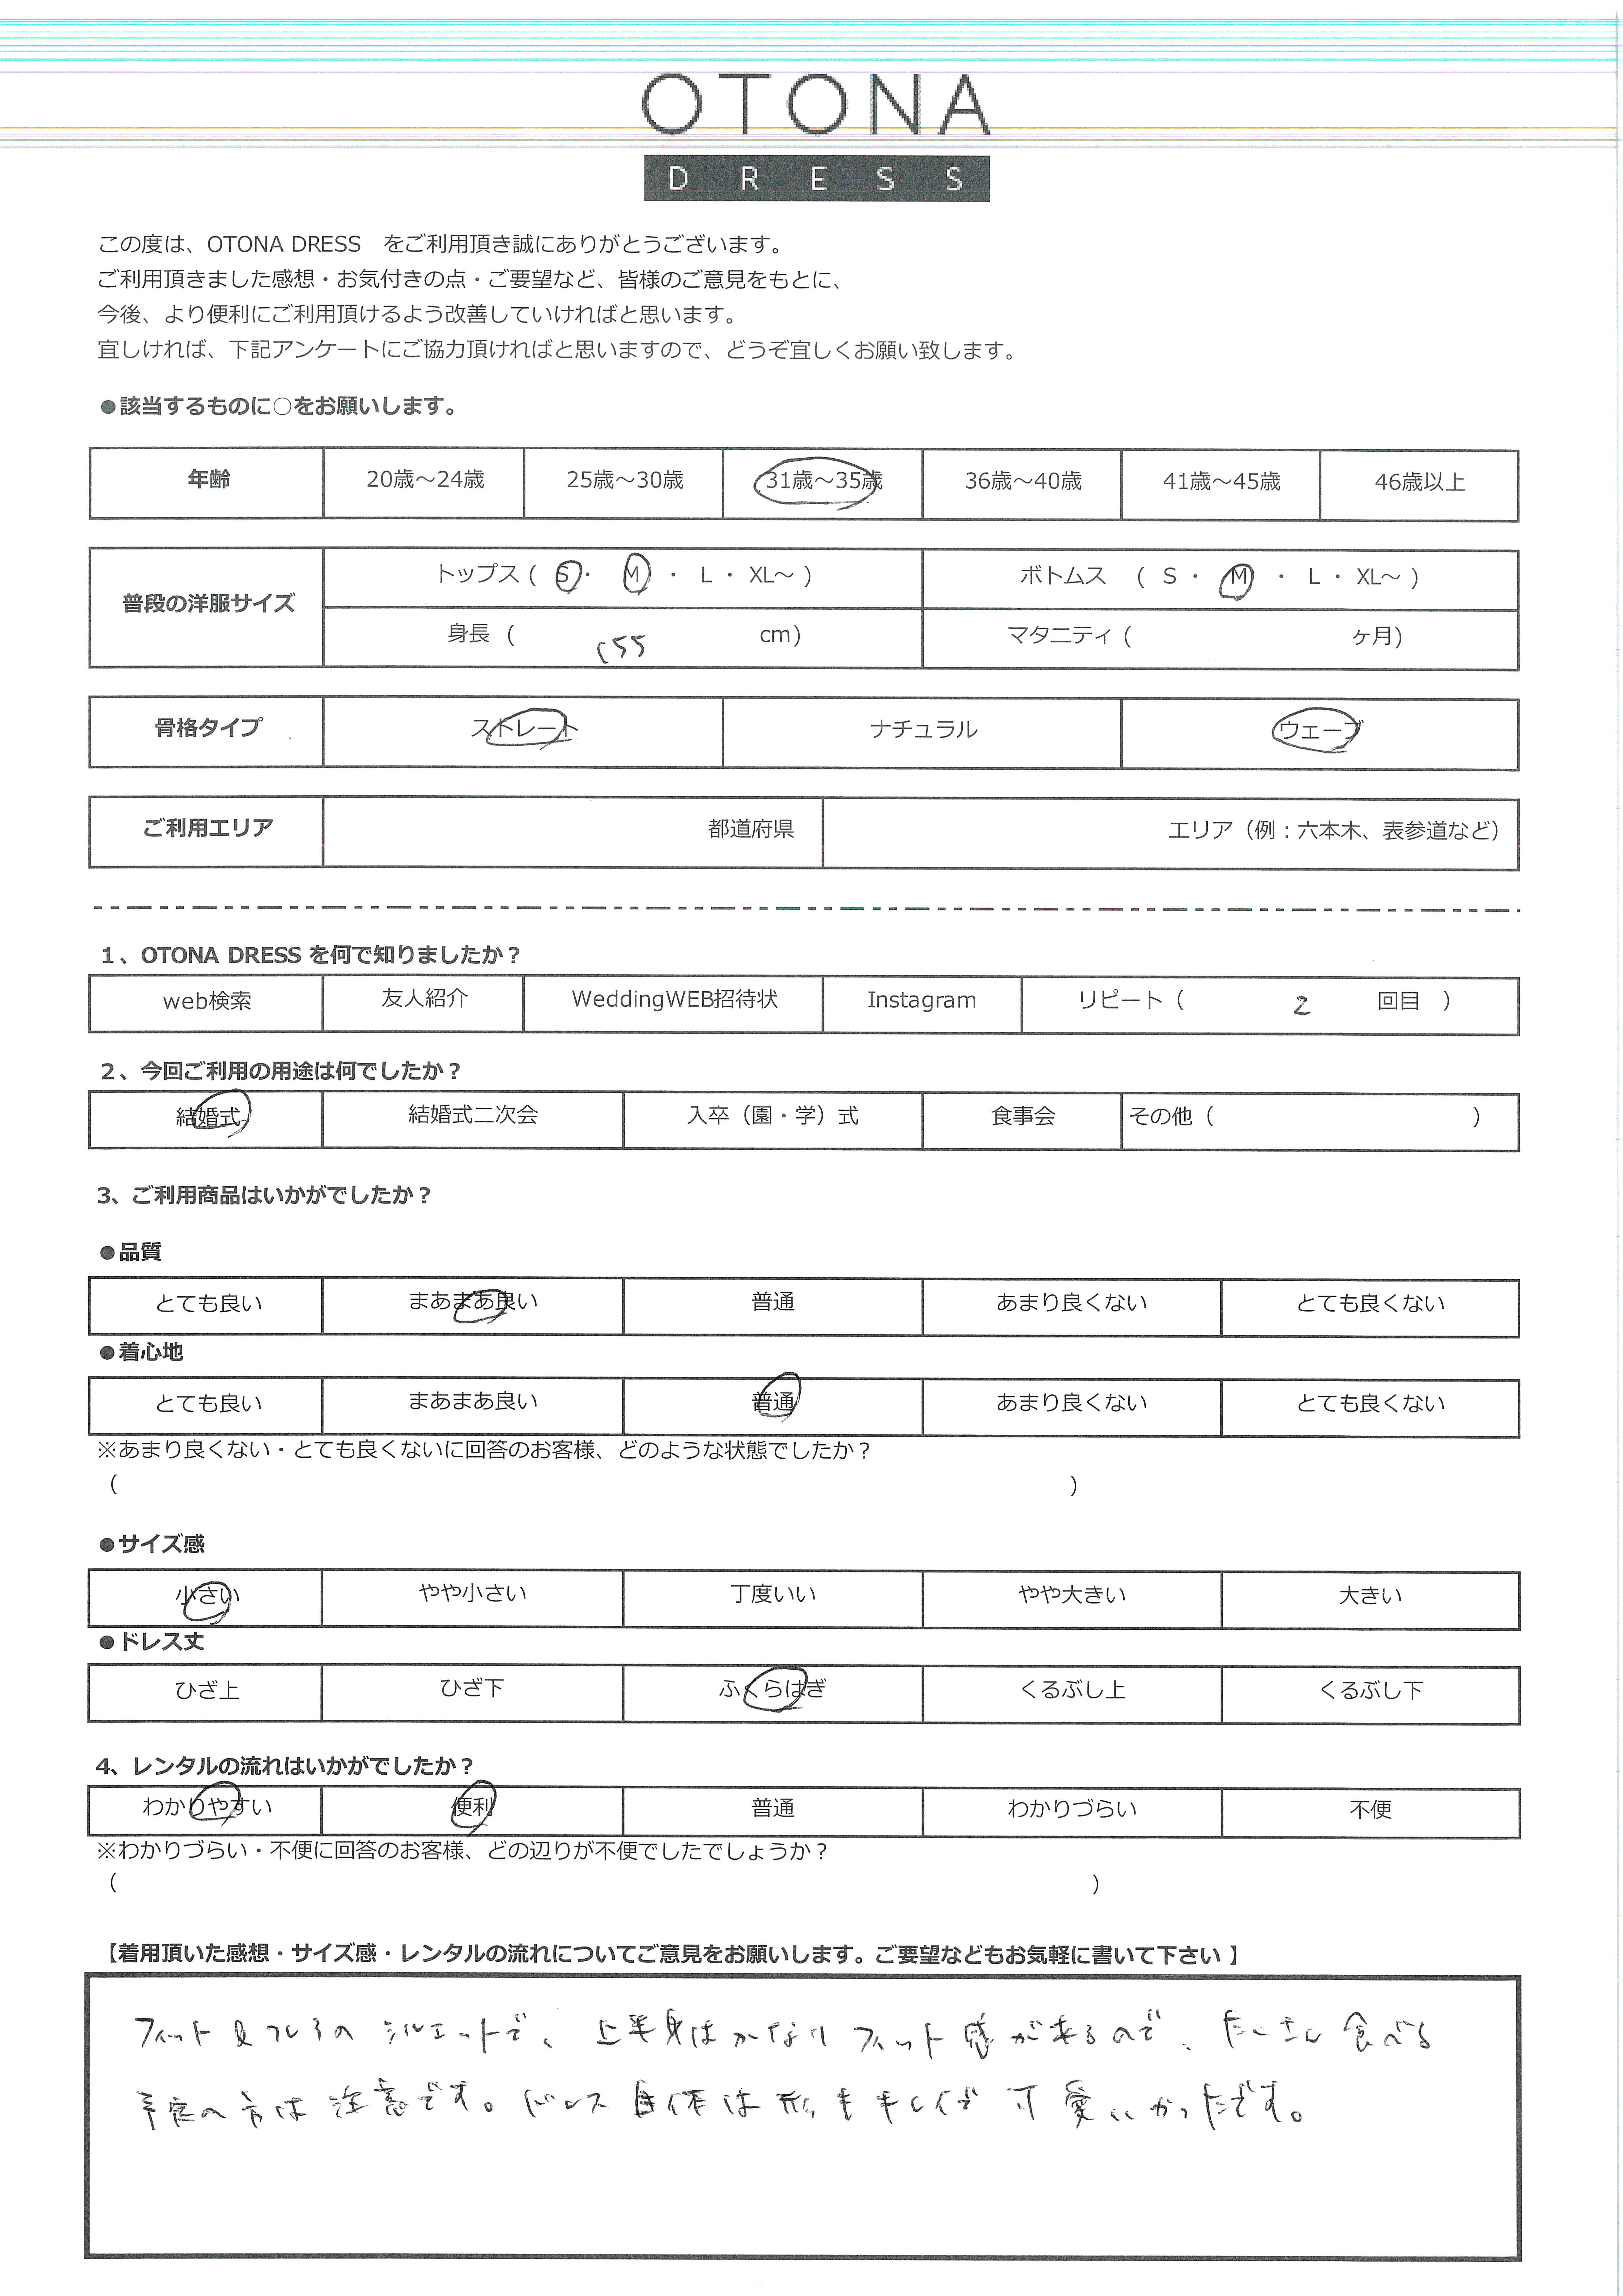 OTONA
DRESS
この度は、OTONA DRESS　をご利用頂き誠にありがとうございます。
ご利用頂きました感想・お気付きの点・ご要望など、皆様のご意見をもとに、
今後、より便利にご利用頂けるよう改善していければと思います。
宜しければ、下記アンケートにご協力頂ければと思いますので、どうぞ宜しくお願い致します。
●該当するものに○をお願いします。
年齢 20歳～24歳 25歳～30歳 31歳～35歳 36歳～40歳 41歳～45歳 46歳以上
普段の洋服サイズ トップス ( S ・ M ・ L ・ XL～ ) ボトムス ( S ・ M ・ L ・ XL～ )
身長 ( 155 cm) マタニティ ( ヶ月)
骨格タイプ ストレート ナチュラル ウェーブ
ご利用エリア 都道府県 エリア（例：六本木、表参道など）
1、OTONA DRESS を何で知りましたか？
web検索 友人紹介 WeddingWEB招待状 Instagram リピート（ 2 回目 ）
2、今回ご利用の用途は何でしたか？
結婚式 結婚式二次会 入卒（園・学）式 食事会 その他（ ）
3、ご利用商品はいかがでしたか？
●品質
とても良い まあまあ良い 普通 あまり良くない とても良くない
●着心地
とても良い まあまあ良い 普通 あまり良くない とても良くない
※あまり良くない・とても良くないに回答のお客様、どのような状態でしたか？
（ ）
●サイズ感
小さい やや小さい 丁度いい やや大きい 大きい
●ドレス丈
ひざ上 ひざ下 ふくらはぎ くるぶし上 くるぶし下
4、レンタルの流れはいかがでしたか？
わかりやすい 便利 普通 わかりづらい 不便
※わかりづらい・不便に回答のお客様、どの辺りが不便でしたでしょうか？
（ ）
【着用頂いた感想・サイズ感・レンタルの流れについてご意見をお願いします。ご要望などもお気軽に書いて下さい 】
フィット&フレアの シルエットで、上半身はかなりフィット感があるので、たくさん食べる
予定の方は注意です。ドレス自体は形もキレイで可愛いかったです。